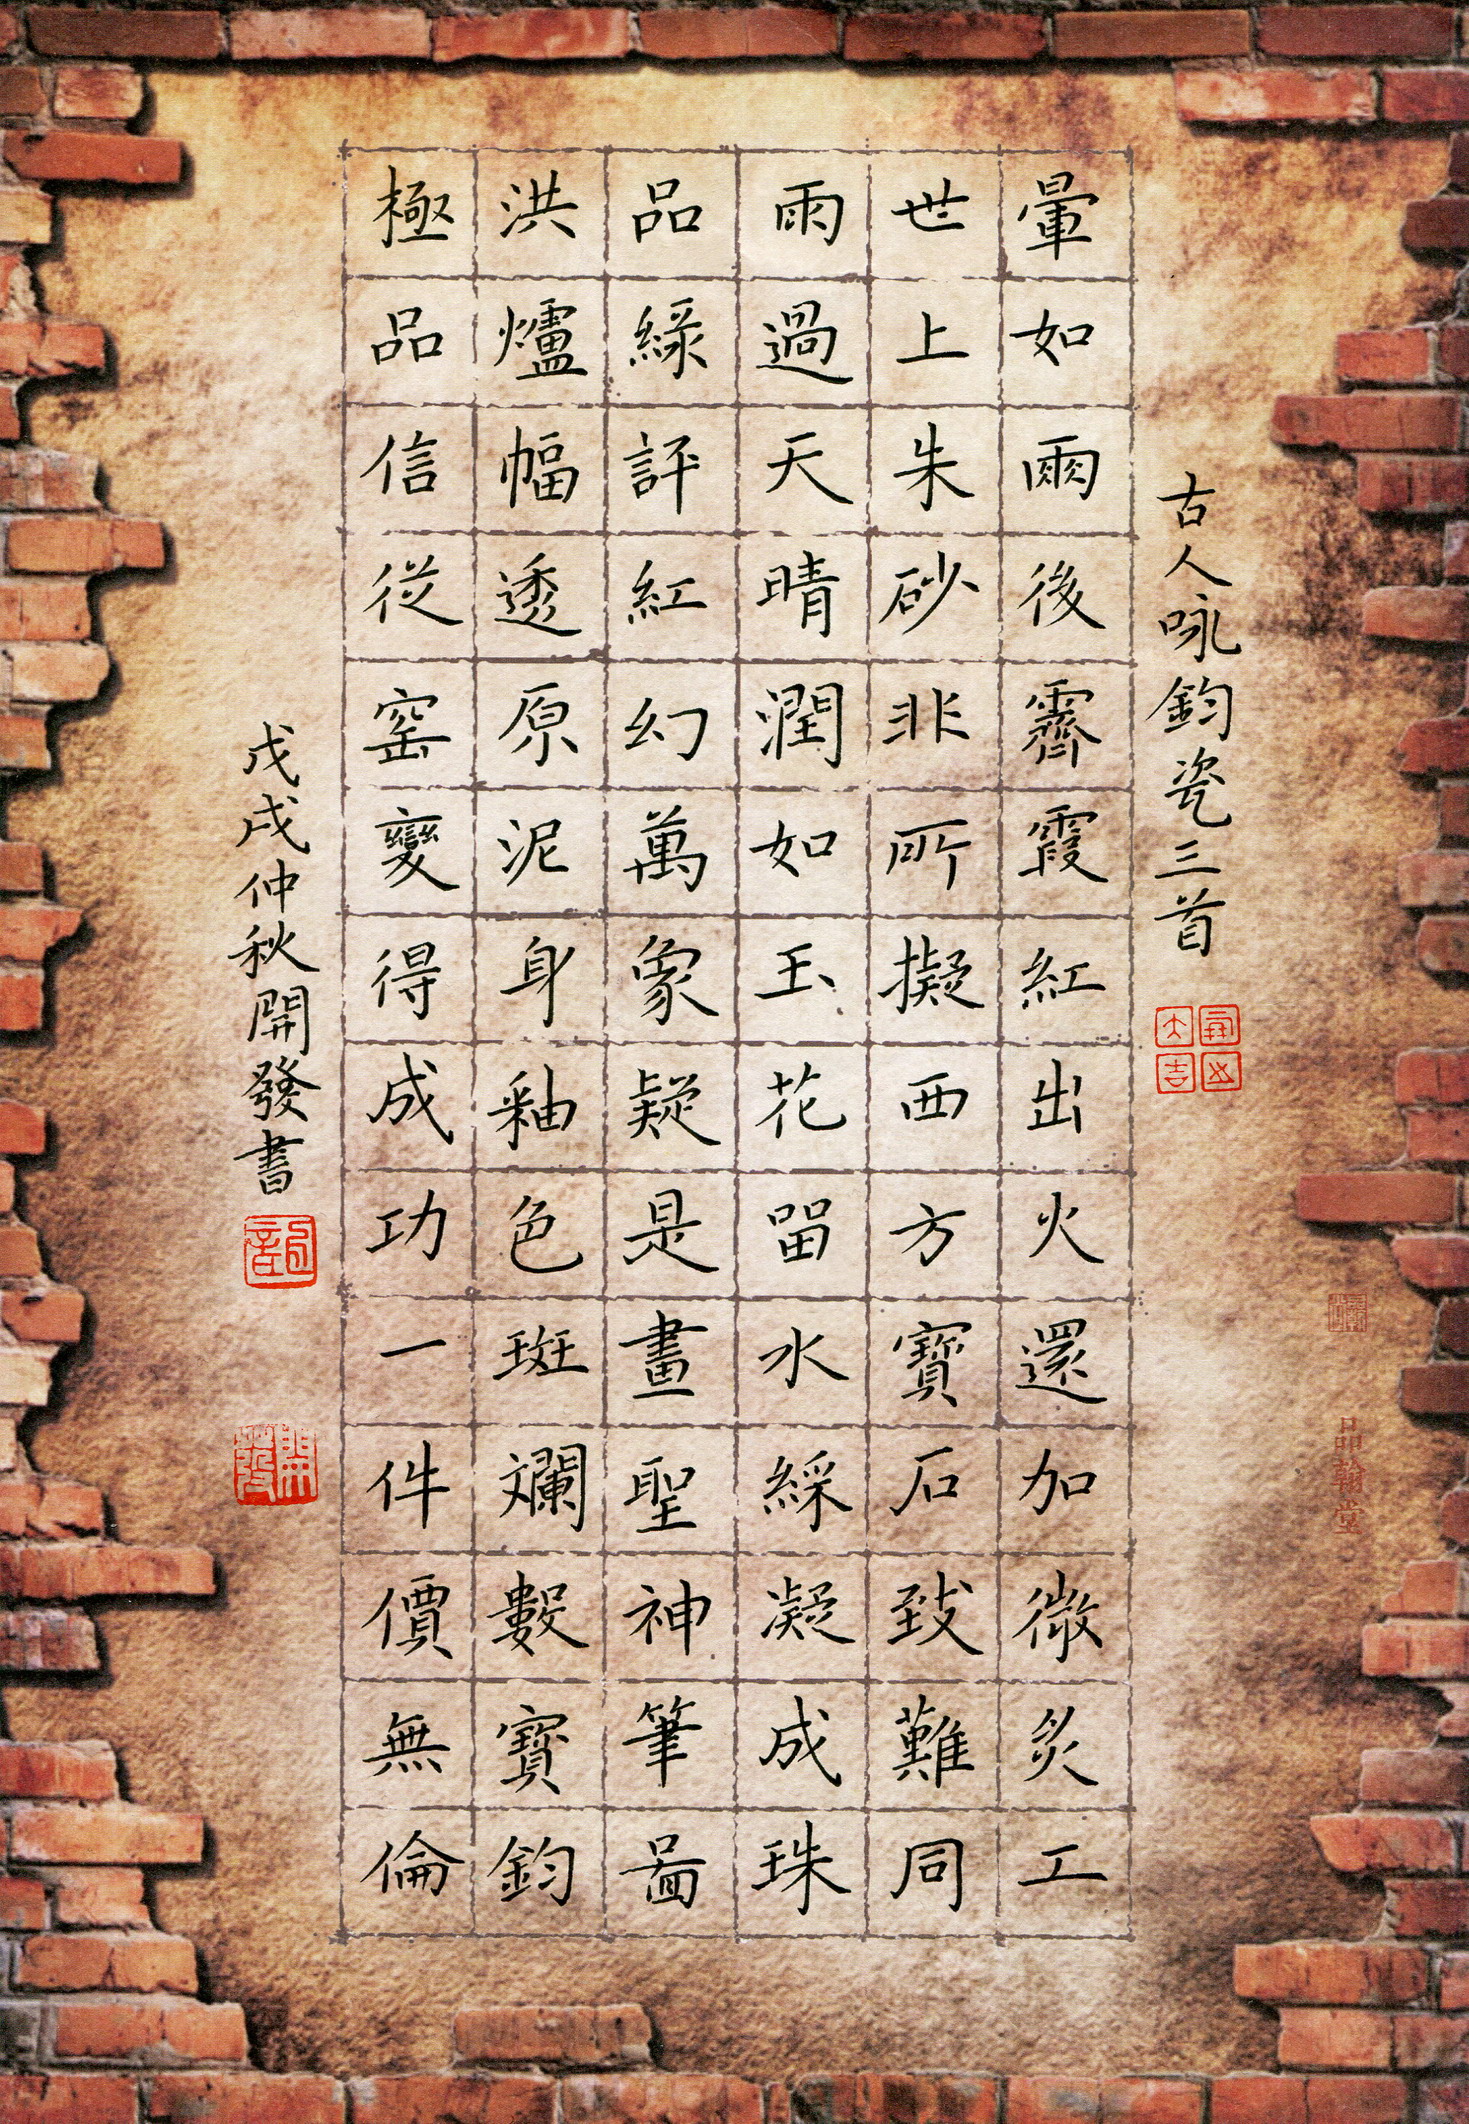 古人咏鈞瓷三首
暈如雨後霽霞紅出火還加微炙工
世上朱砂非所擬西方寶石致難同
雨過天晴潤如玉花留水綵凝成珠
品綠評紅幻萬象疑是畫聖神筆啚
洪爐幅透原泥身釉色斑斕數寶鈞
極品信從窑變得成功一件價無倫
戊戌仲秋開發書
大吉
品翰堂